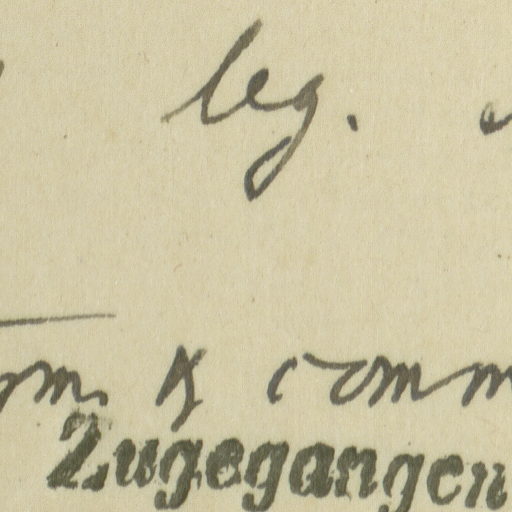 leg.
& comm
Zugegangen